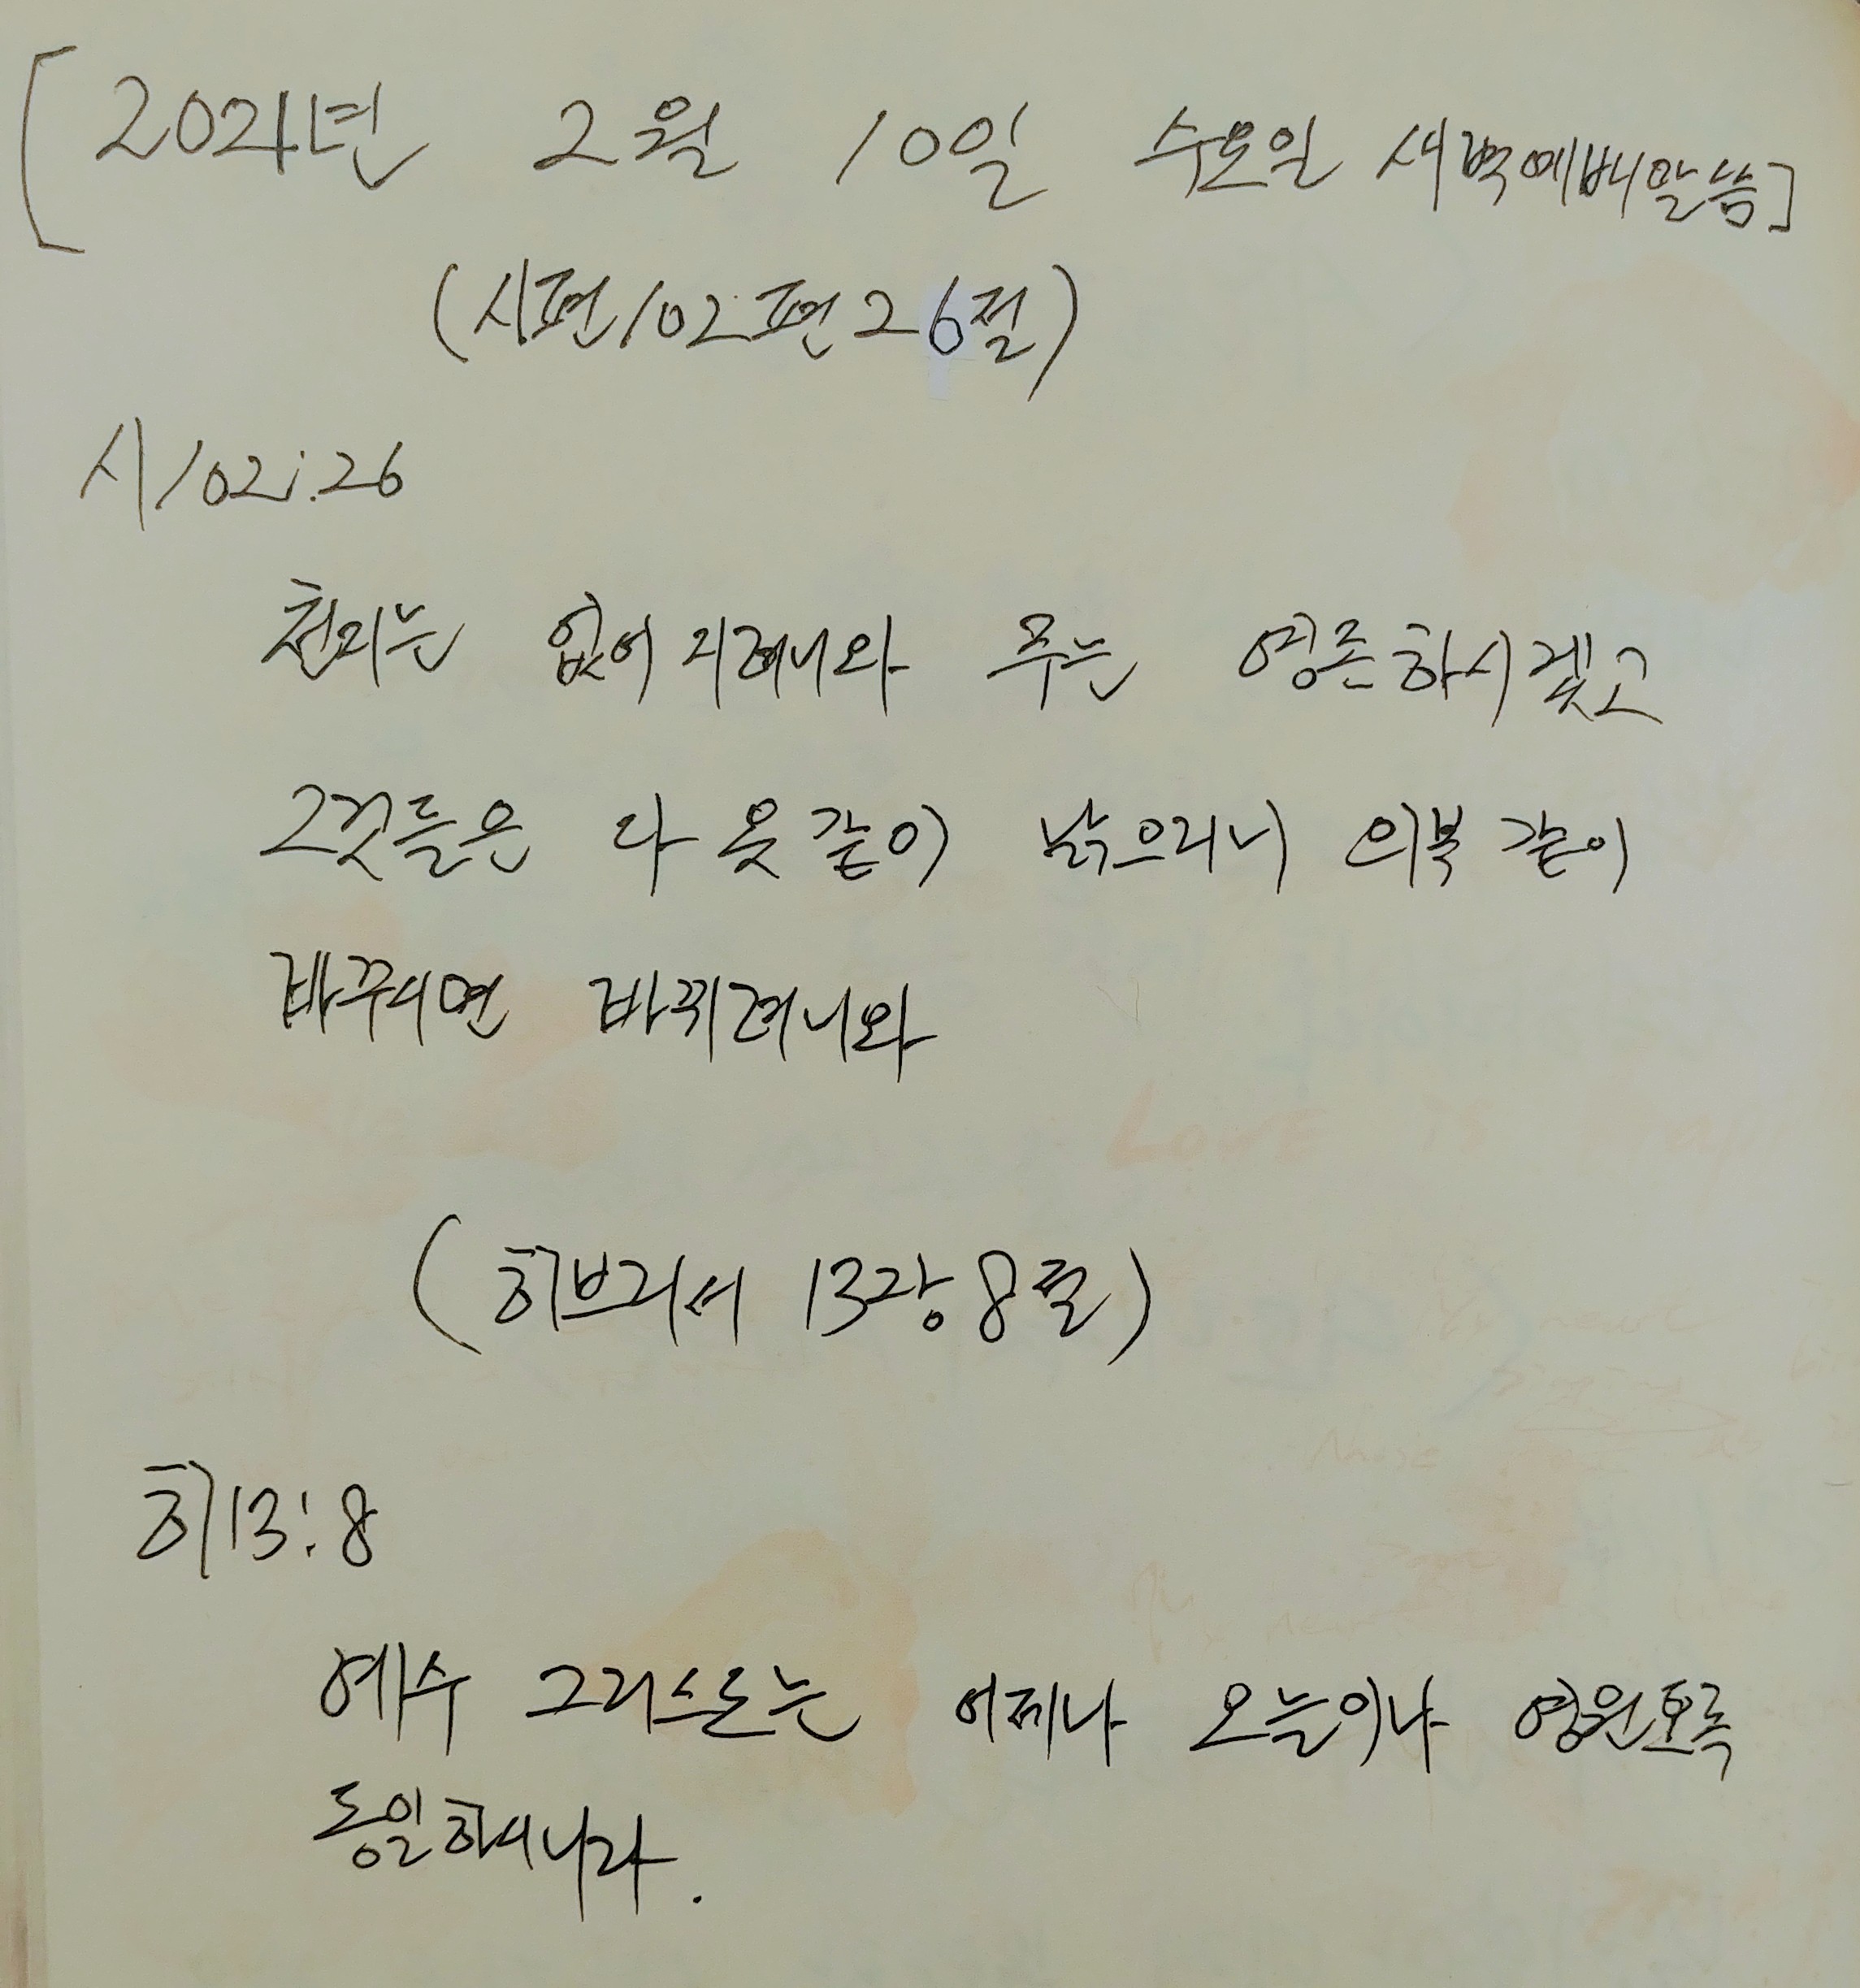 [2021년 2월 10일 수요일 새벽예배말씀]
(시편102편26절)
시102:26
천지는 없어지려니와 주는 영존하시겠고
그것들은 다 옷같이 낡으리니 의복같이
바꾸시면 바뀌려니와
(히브리서 13장8절)
히13:8
예수 그리스도는 어제나 오늘이나 영원토록
동일하시니라.